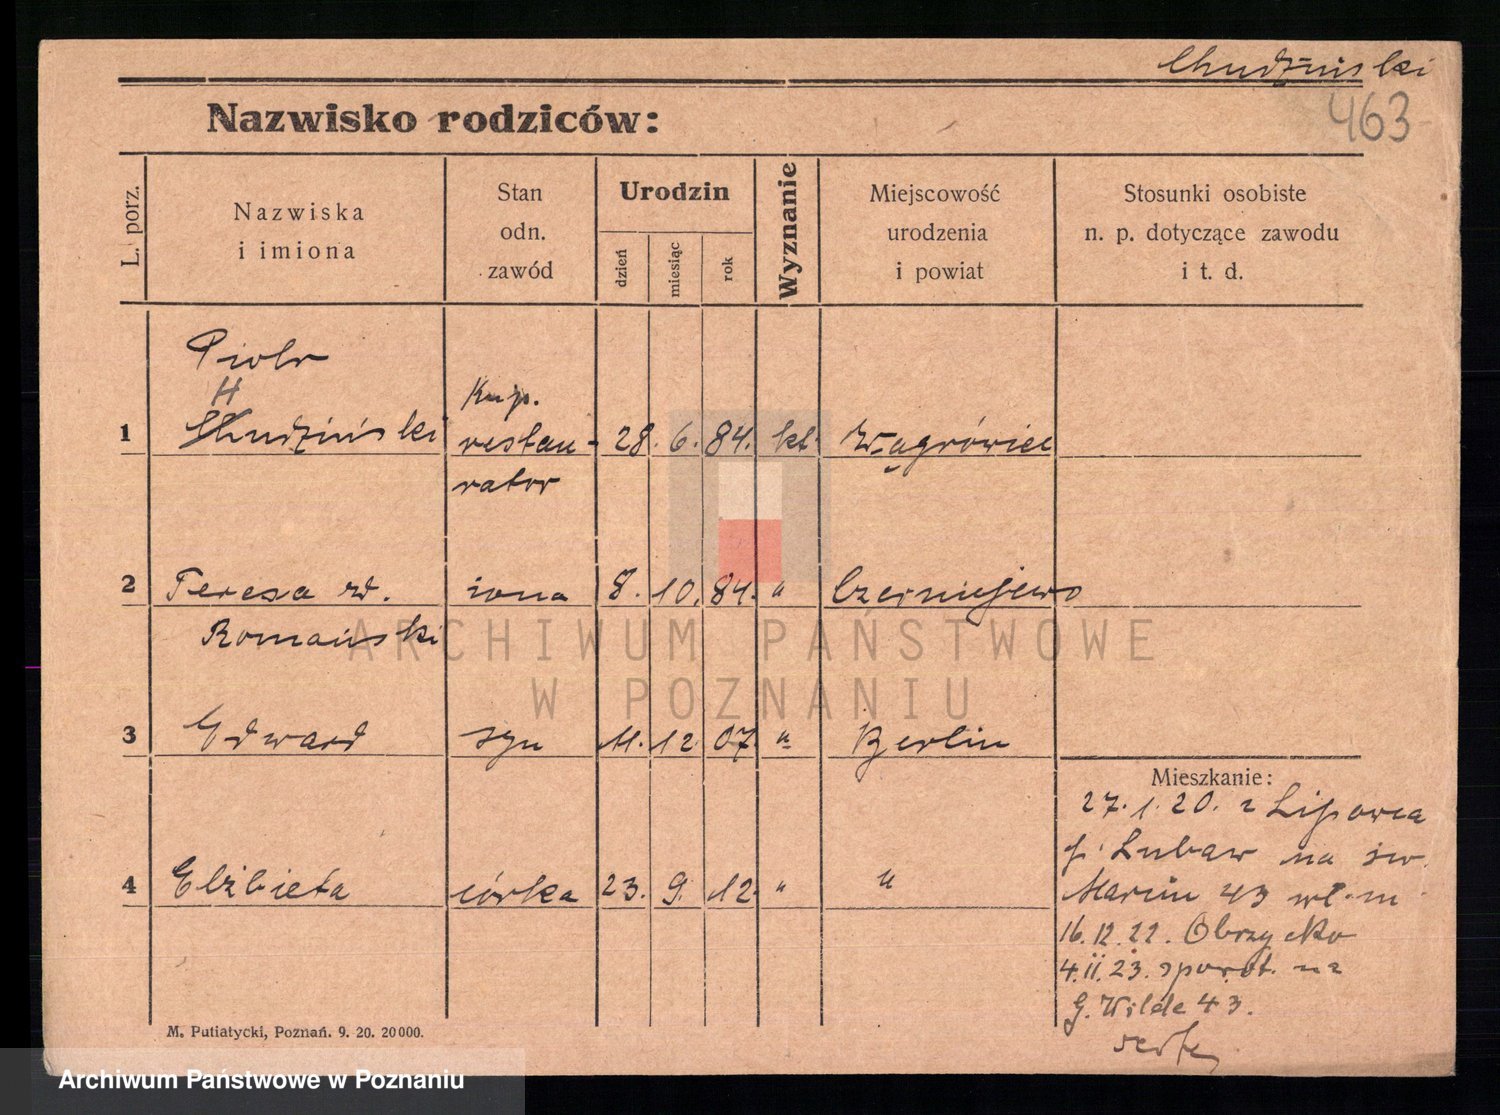 Chudziński
463
Nazwisko rodziców:
L. porz.
Nazwiska
i imiona
Stan
odn.
zawód
Urodzin
dzień
miesiąc
rok
Wyznanie
Miejscowość
urodzenia
i powiat
Stosunki osobiste
n. p. dotyczące zawodu
i t. d.
Piotr
H
Kup.
1 Chudziński restau- 28. 6. 84. kt. Wągrówiec
rator
2 Teresa rd. żona 8. 10. 84. " Czerniejewo
Romański
3 Edward syn 11. 12 07. " Berlin
4 Elżbieta córka 23. 9. 12. " "
Mieszkanie:
27. 1. 20. z Lipowca
p. Lubaw na św.
Marcin 43 wł. m
16. 12. 22. Obrzycko
4. II. 23. spowrot. na
G. Wilde 43.
M. Putiatycki, Poznań. 9. 20. 20000.
ARCHIWUM PAŃSTWOWE
W POZNANIU
Archiwum Państwowe w Poznaniu